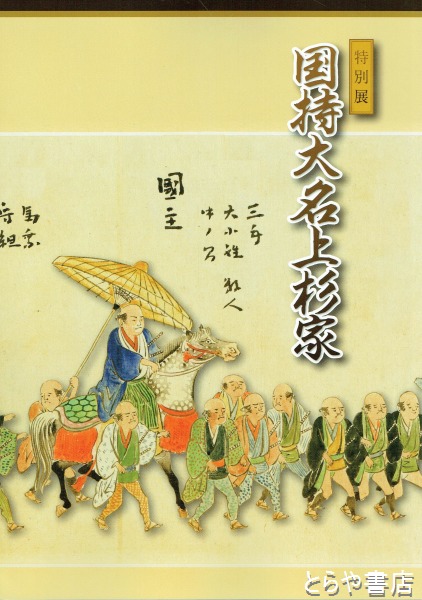 特別展
国持大名上杉家
三手
大小姓 拾人
中ノ間
國主
馬乗
守組
とらや書店